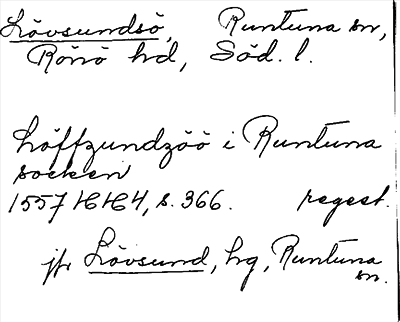 Lövsundsö, Runtuna sn,
Rönö hd, Söd. l.
Löffzundzöö i Runtuna
socken
1557 HH4, s. 366. regest.
jfr Lövsund, hg, Runtuna
sn.